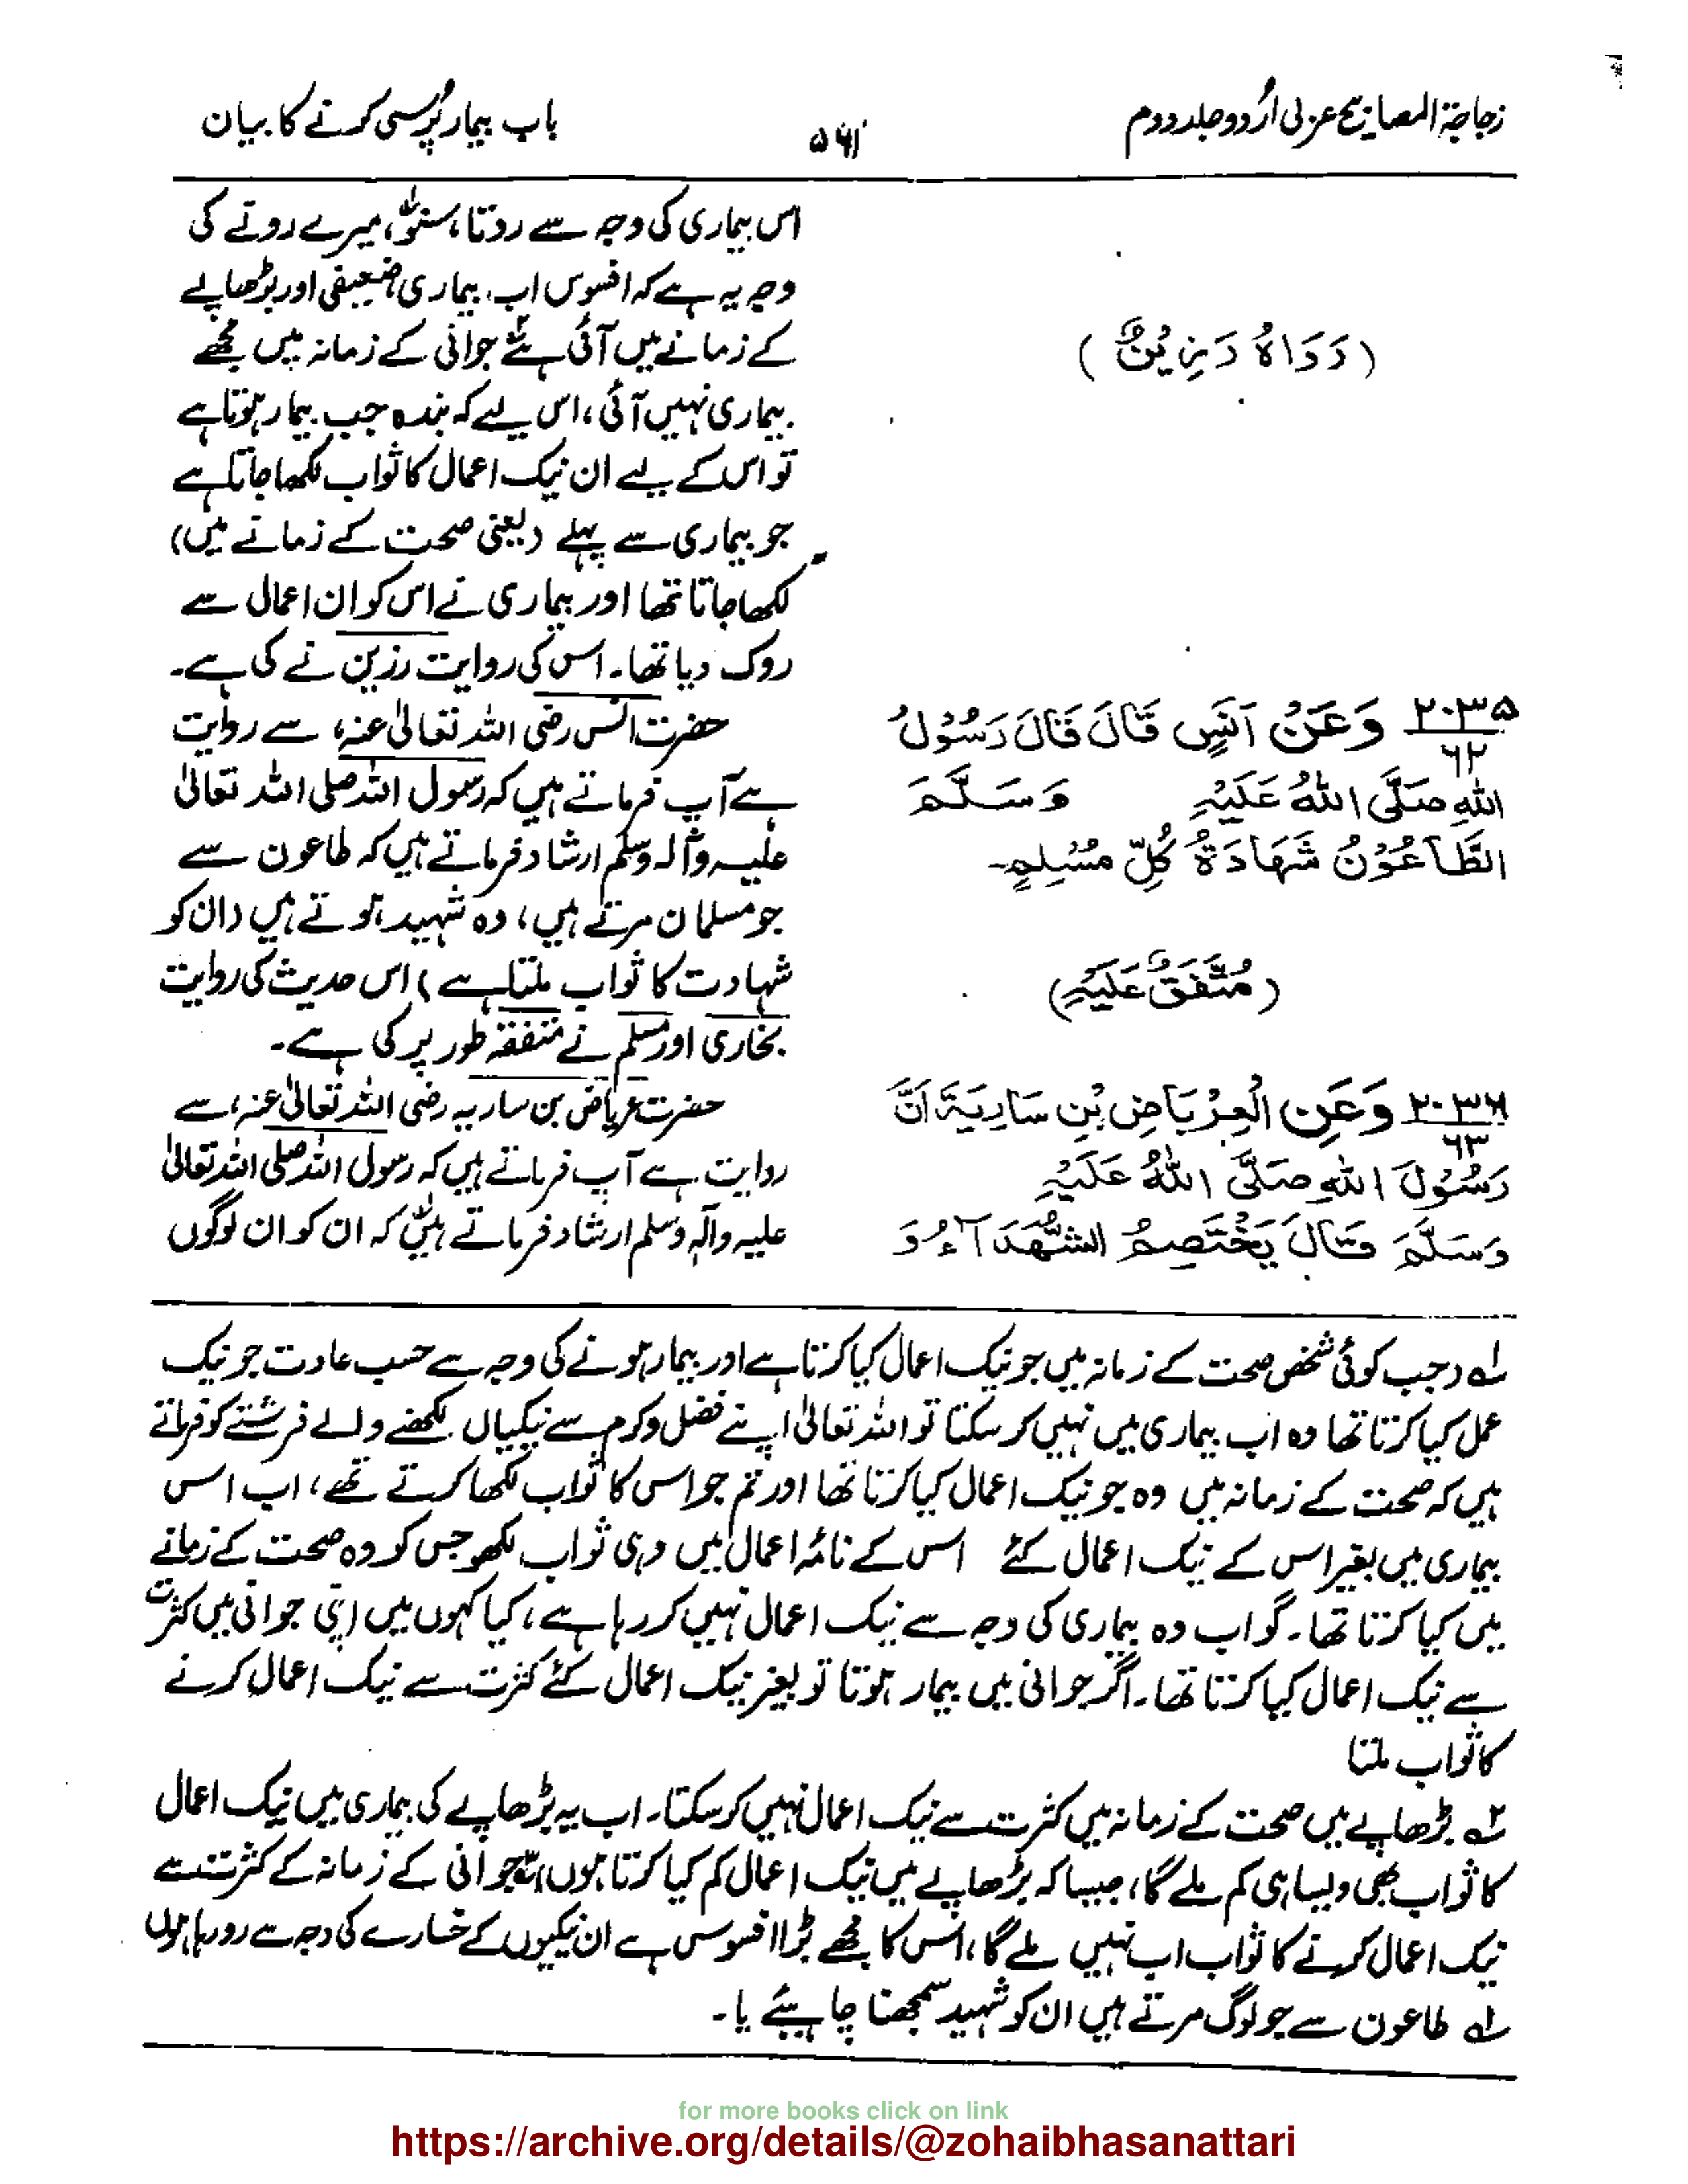 زجاجة المصابیح عربی اُردو جلد دوم
۵۶۱
باب بیمار پُرسی کرنے کا بیان
اس بیماری کی وجہ سے روتا، سنو، میرے رونے کی
وجہ یہ ہے کہ افسوس اب بیماری ضعیفی اور بڑھاپے
کے زمانے میں آئی ہے جوانی کے زمانہ میں مجھے
بیماری نہیں آئی، اس لیے کہ بندہ جب بیمار ہوتا ہے
تو اس کے لیے ان نیک اعمال کا ثواب لکھا جاتا ہے
جو بیماری سے پہلے (یعنی صحت کے زمانے میں)
لکھا جاتا تھا اور بیماری نے اس کو ان اعمال سے
روک دیا تھا۔ اس کی روایت رزین نے کی ہے۔
(رَوَاهُ رَزِيْنٌ)
۲۰۳۵
۶۲
وَعَنْ اَنَسٍ قَالَ قَالَ رَسُوْلُ
اللهِ صَلَّى اللهُ عَلَيْهِ وَسَلَّمَ
الطَّاعُوْنُ شَهَادَةُ كُلِّ مُسْلِمٍ۔
(مُتَّفَقٌ عَلَيْهِ)
حضرت انس رضی اللہ تعالیٰ عنہ، سے روایت
ہے آپ فرماتے ہیں کہ رسول اللہ صلی اللہ تعالیٰ
علیہ وآلہ وسلم ارشاد فرماتے ہیں کہ طاعون سے
جو مسلمان مرتے ہیں، وہ شہید ہوتے ہیں (ان کو
شہادت کا ثواب ملتا ہے) اس حدیث کی روایت
بخاری اور مسلم نے متفقہ طور پر کی ہے۔
۲۰۳۶
۶۳
وَعَنِ الْعِرْبَاضِ بْنِ سَارِيَةَ اَنَّ
رَسُوْلَ اللهِ صَلَّى اللهُ عَلَيْهِ
وَسَلَّمَ قَالَ يَخْتَصِمُ الشُّهَدَآءُ وَ
حضرت عرباض بن ساریہ رضی اللہ تعالیٰ عنہ، سے
روایت ہے آپ فرماتے ہیں کہ رسول اللہ صلی اللہ تعالیٰ
علیہ وآلہ وسلم ارشاد فرماتے ہیں کہ ان کو ان لوگوں
لہ (جب کوئی شخص صحت کے زمانہ میں جو نیک اعمال کیا کرتا ہے اور بیمار ہونے کی وجہ سے حسب عادت جو نیک
عمل کیا کرتا تھا وہ اب بیماری میں نہیں کر سکتا تو اللہ تعالیٰ اپنے فضل و کرم سے نیکیاں لکھنے والے فرشتے کو فرماتے
ہیں کہ صحت کے زمانہ میں وہ جو نیک اعمال کیا کرتا تھا اور تم جو اس کا ثواب لکھا کرتے تھے، اب اس
بیماری میں بغیر اس کے نیک اعمال کئے اس کے نامۂ اعمال میں وہی ثواب لکھو جس کو وہ صحت کے زمانے
میں کیا کرتا تھا۔ گو اب وہ بیماری کی وجہ سے نیک اعمال نہیں کر رہا ہے، کیا کہوں میں اپنی جوانی میں کثرت
سے نیک اعمال کیا کرتا تھا۔ اگر جوانی میں بیمار ہوتا تو بغیر نیک اعمال کئے کثرت سے نیک اعمال کرنے
کا ثواب ملتا
۲ہ بڑھاپے میں صحت کے زمانہ میں کثرت سے نیک اعمال نہیں کر سکتا۔ اب یہ بڑھاپے کی بیماری میں نیک اعمال
کا ثواب بھی ویسا ہی کم ملے گا، جیسا کہ بڑھاپے میں نیک اعمال کم کیا کرتا ہوں، جوانی کے زمانہ کے کثرت سے
نیک اعمال کرنے کا ثواب اب نہیں ملے گا، اس کا مجھے بڑا افسوس ہے ان نیکیوں کے خسارے کی وجہ سے رو رہا ہوں
لہ طاعون سے جو لوگ مرتے ہیں ان کو شہید سمجھنا چاہیئے یا۔
for more books click on link
https://archive.org/details/@zohaibhasanattari